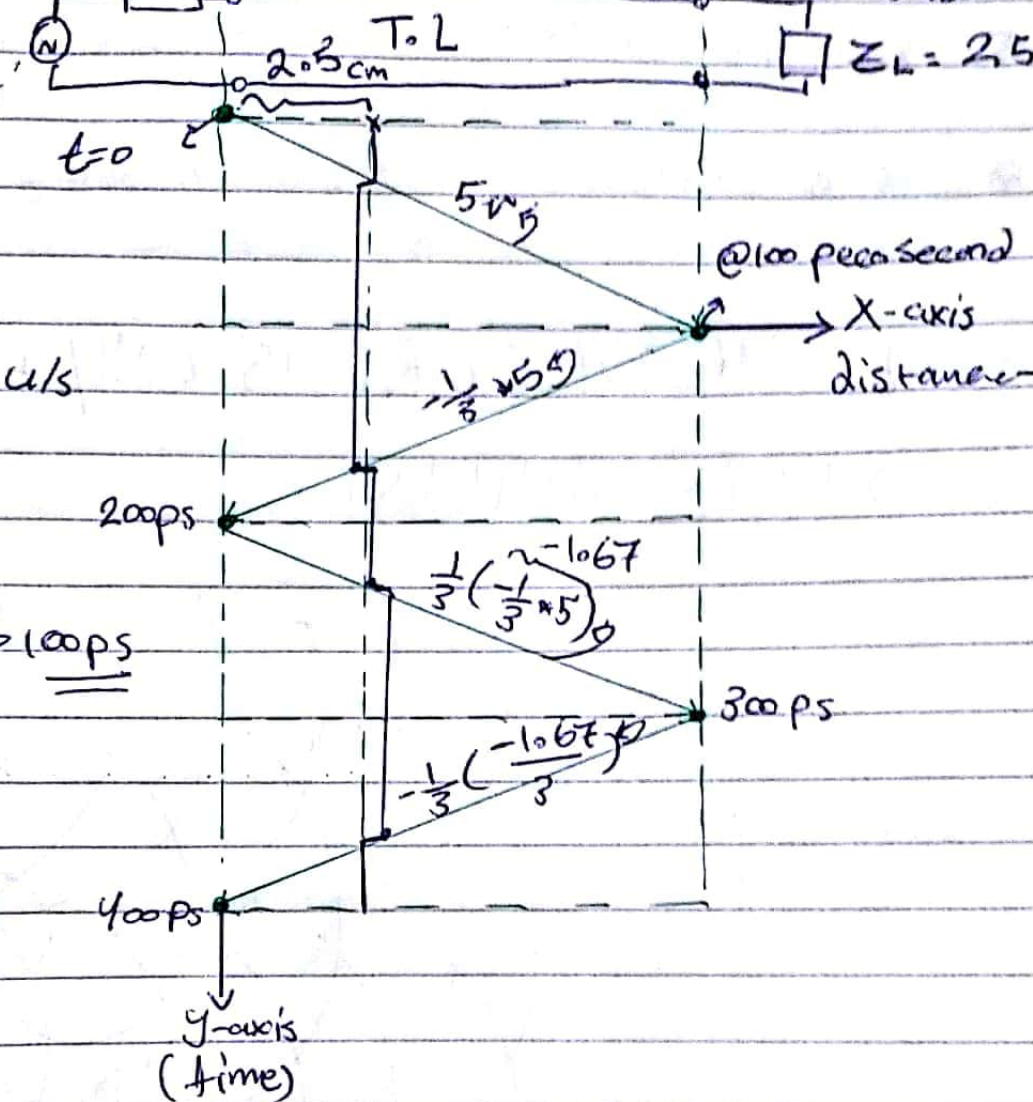 N
T.L
2.5cm
Z_L = 25
t=0
5v
@100 peco second
X-axis
distance
u/s
-1/3 * 5
200ps
1/3 (-1/3 * 5)
-1.67
100ps
300ps
-1/3 (-1.67/3)
400ps
y-axis
(time)